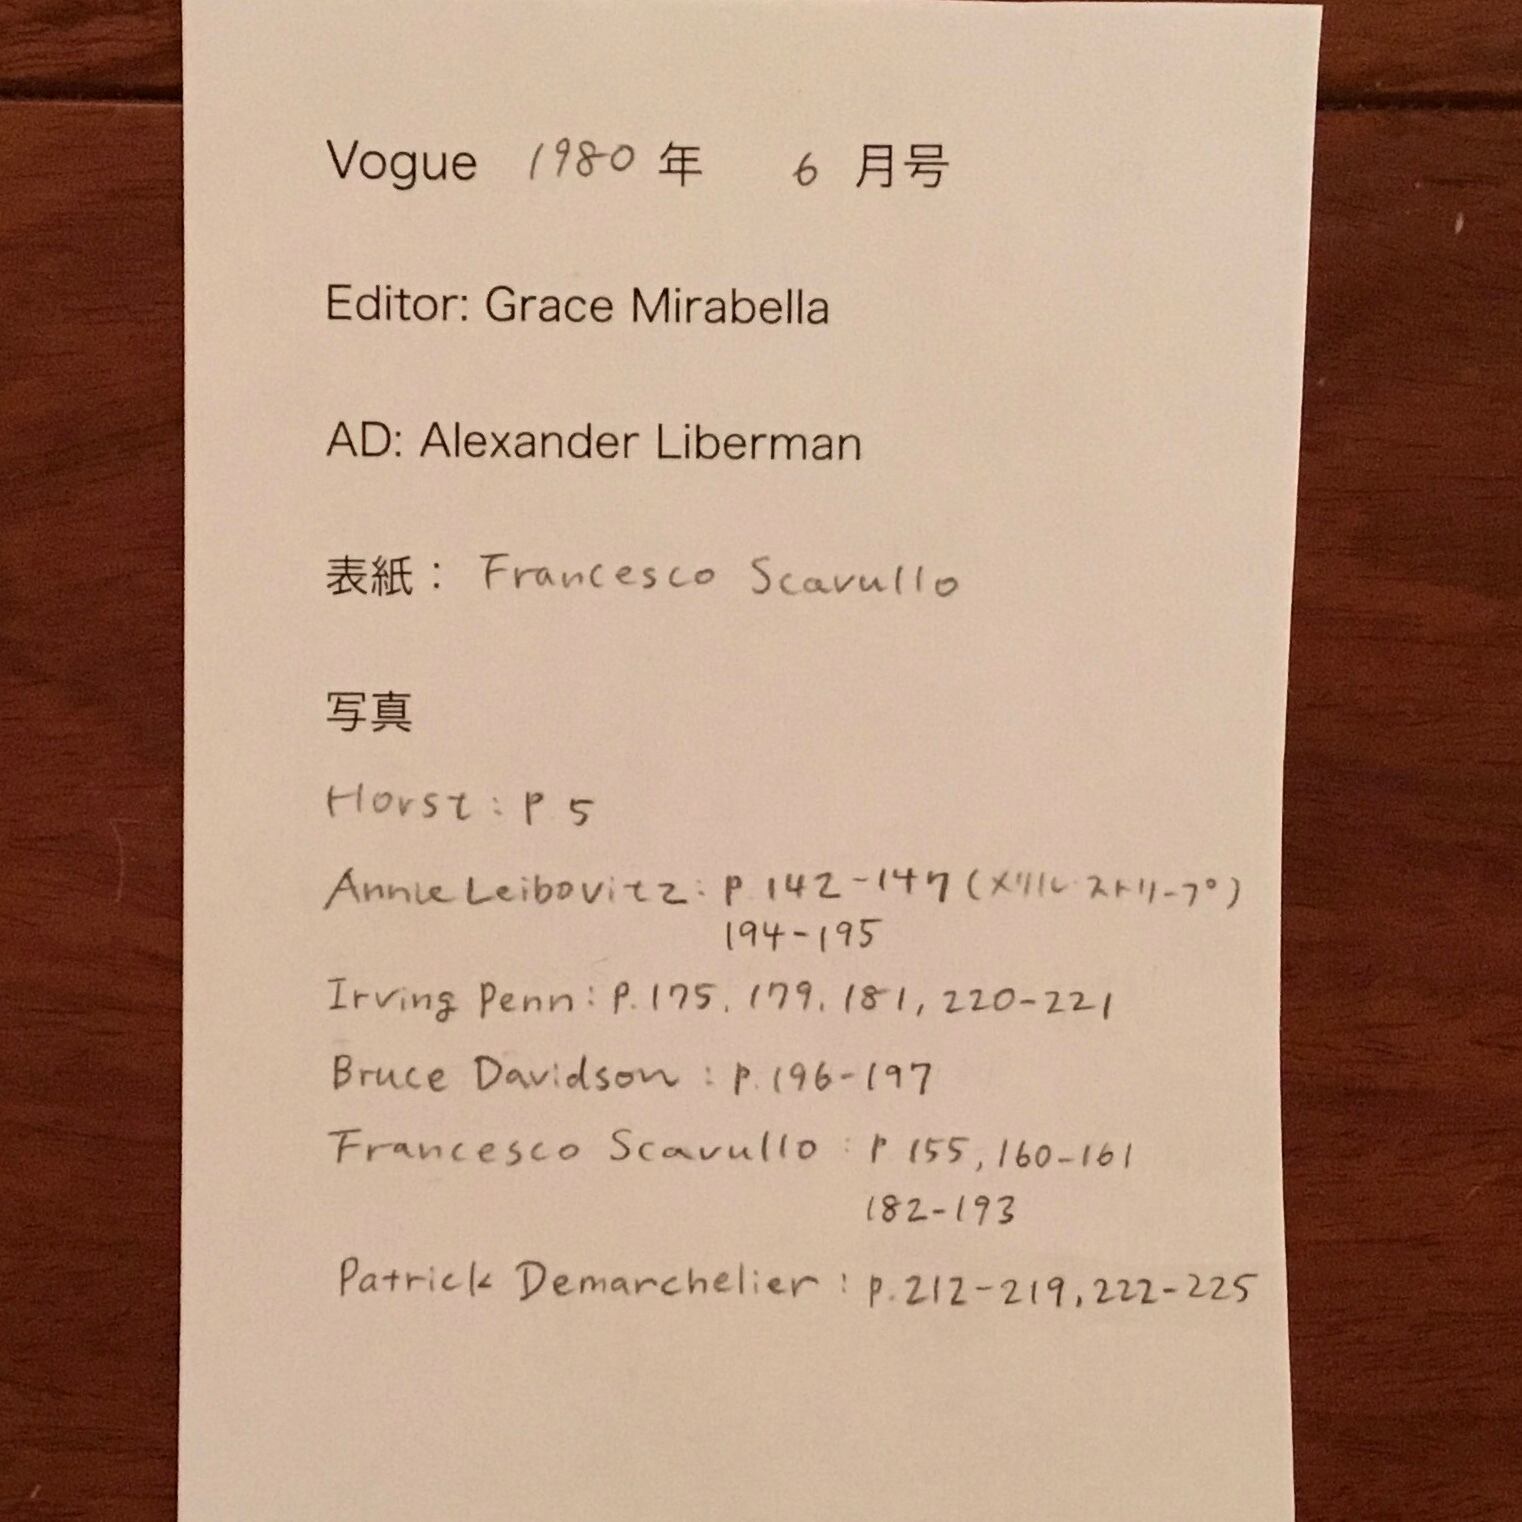 Vogue 1980 年 6 月号
Editor: Grace Mirabella
AD: Alexander Liberman
表紙： Francesco Scavullo
写真
Horst : P 5
Annie Leibovitz : p 142-147 (メリル ストリープ)
194-195
Irving Penn : P. 175, 179, 181, 220-221
Bruce Davidson : p. 196-197
Francesco Scavullo : P 155, 160-161
182-193
Patrick Demarchelier : p. 212-219, 222-225